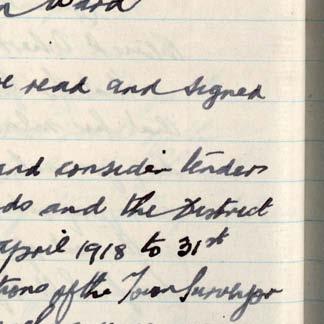 Ward
read and signed
and consider tenders
and the District
April 1918 to 31st
of the Town Surveyor